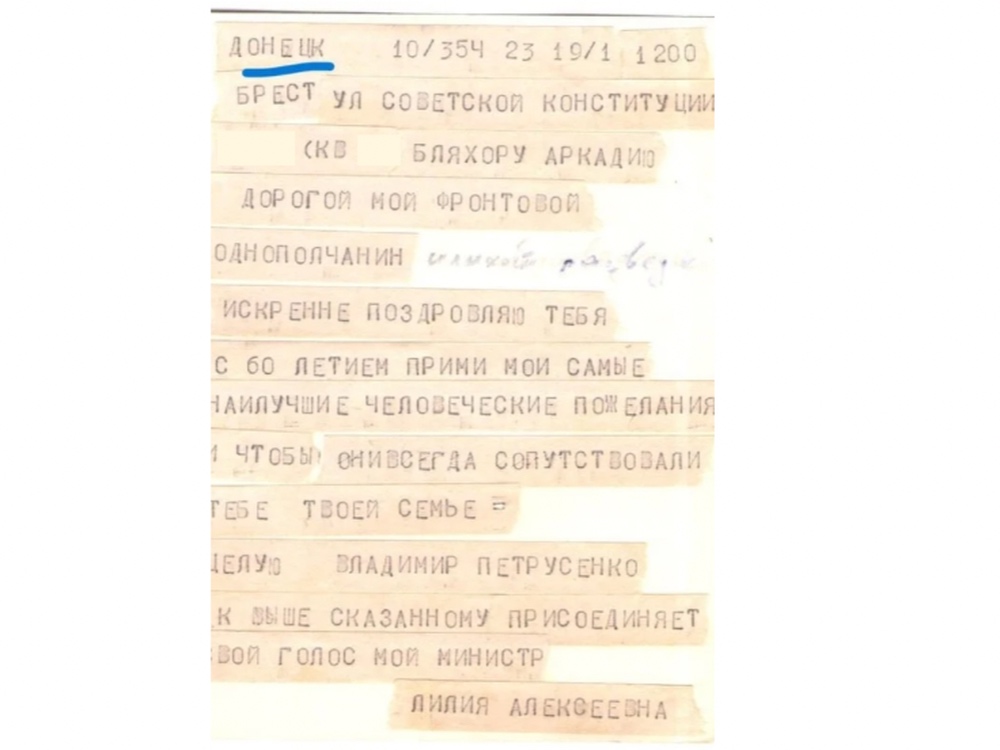 ДОНЕЦК 10/354 23 19/1 1200
БРЕСТ УЛ СОВЕТСКОЙ КОНСТИТУЦИИ
(КВ БЛЯХОРУ АРКАДИЮ
ДОРОГОЙ МОЙ ФРОНТОВОЙ
ОДНОПОЛЧАНИН
ИСКРЕННЕ ПОЗДРОВЛЯЮ ТЕБЯ
С 60 ЛЕТИЕМ ПРИМИ МОИ САМЫЕ
НАИЛУЧШИЕ ЧЕЛОВЕЧЕСКИЕ ПОЖЕЛАНИЯ
И ЧТОБЫ ОНИВСЕГДА СОПУТСТВОВАЛИ
ТЕБЕ ТВОЕЙ СЕМЬЕ =
ЦЕЛУЮ ВЛАДИМИР ПЕТРУСЕНКО
К ВЫШЕ СКАЗАННОМУ ПРИСОЕДИНЯЕТ
СВОЙ ГОЛОС МОЙ МИНИСТР
ЛИЛИЯ АЛЕКСЕЕВНА